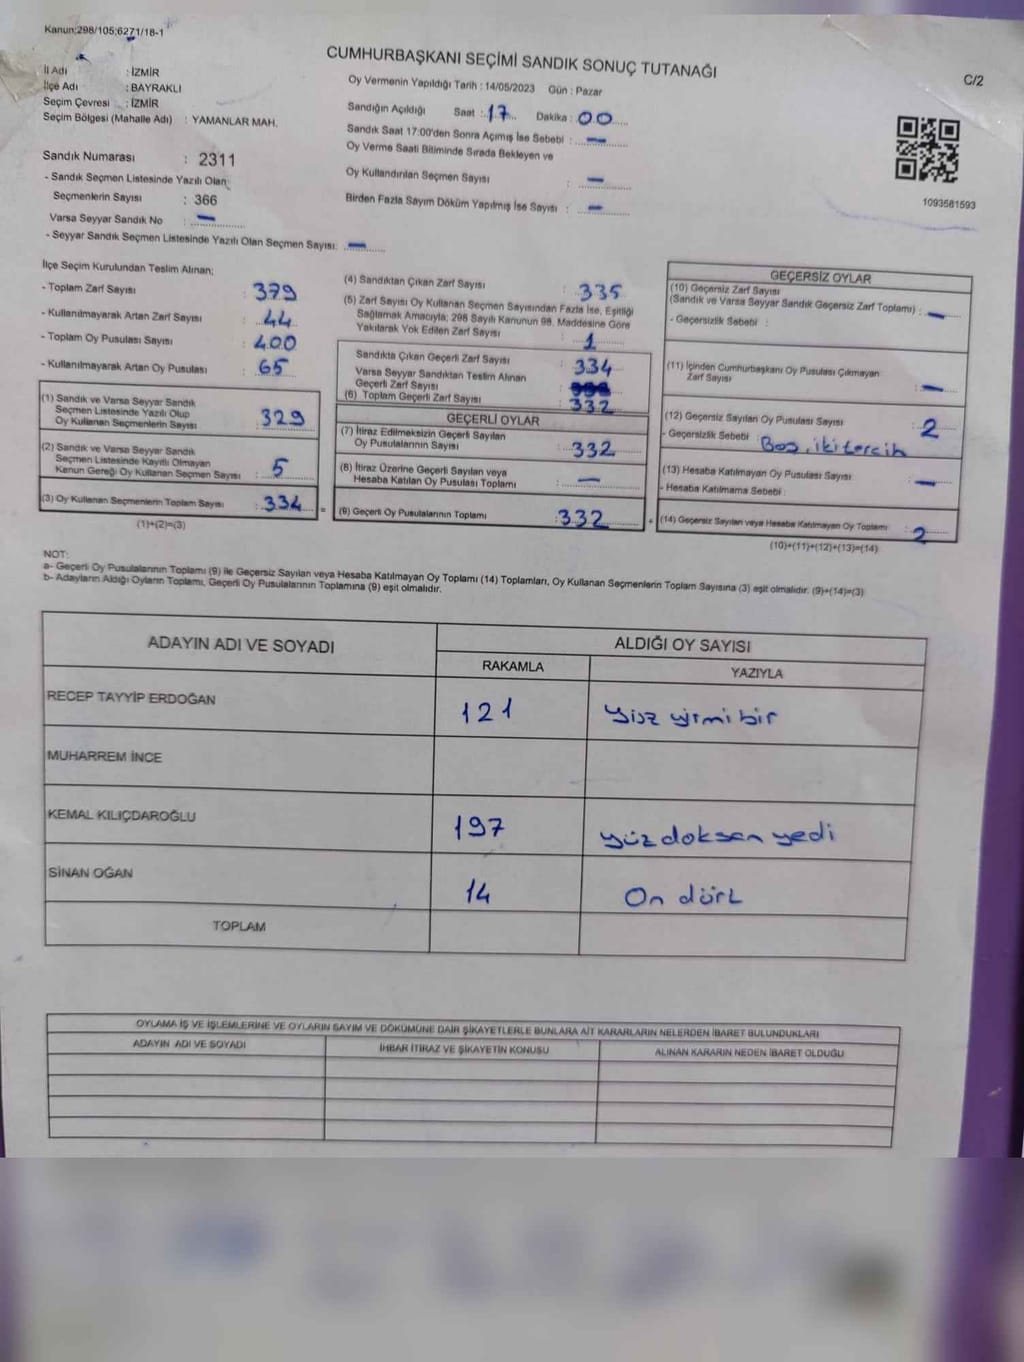 Kanun:298/105;6271/18-1
CUMHURBAŞKANI SEÇİMİ SANDIK SONUÇ TUTANAĞI
C/2
İl Adı : İZMİR
İlçe Adı : BAYRAKLI
Seçim Çevresi : İZMİR
Seçim Bölgesi (Mahalle Adı) : YAMANLAR MAH.
Oy Vermenin Yapıldığı Tarih : 14/05/2023 Gün : Pazar
Sandığın Açıldığı Saat : 17 Dakika : 00
Sandık Saat 17:00'den Sonra Açılmış İse Sebebi : —
Oy Verme Saati Bitiminde Sırada Bekleyen ve
Oy Kullandırılan Seçmen Sayısı : —
Birden Fazla Sayım Döküm Yapılmış İse Sayısı : —
1093581593
Sandık Numarası : 2311
- Sandık Seçmen Listesinde Yazılı Olan
Seçmenlerin Sayısı : 366
Varsa Seyyar Sandık No : —
- Seyyar Sandık Seçmen Listesinde Yazılı Olan Seçmen Sayısı: —
İlçe Seçim Kurulundan Teslim Alınan;
- Toplam Zarf Sayısı : 379
- Kullanılmayarak Artan Zarf Sayısı : 44
- Toplam Oy Pusulası Sayısı : 400
- Kullanılmayarak Artan Oy Pusulası : 65
(1) Sandık ve Varsa Seyyar Sandık
Seçmen Listesinde Yazılı Olup
Oy Kullanan Seçmenlerin Sayısı : 329
(2) Sandık ve Varsa Seyyar Sandık
Seçmen Listesinde Kayıtlı Olmayan
Kanun Gereği Oy Kullanan Seçmen Sayısı : 5
(3) Oy Kullanan Seçmenlerin Toplam Sayısı : 334
(1)+(2)=(3)
(4) Sandıktan Çıkan Zarf Sayısı : 335
(5) Zarf Sayısı Oy Kullanan Seçmen Sayısından Fazla İse, Eşitliği
Sağlamak Amacıyla; 298 Sayılı Kanunun 98. Maddesine Göre
Yakılarak Yok Edilen Zarf Sayısı : 1
Sandıkta Çıkan Geçerli Zarf Sayısı : 334
Varsa Seyyar Sandıktan Teslim Alınan
Geçerli Zarf Sayısı :
(6) Toplam Geçerli Zarf Sayısı : 332
GEÇERLİ OYLAR
(7) İtiraz Edilmeksizin Geçerli Sayılan
Oy Pusulalarının Sayısı : 332
(8) İtiraz Üzerine Geçerli Sayılan veya
Hesaba Katılan Oy Pusulası Toplamı : —
(9) Geçerli Oy Pusulalarının Toplamı : 332
GEÇERSİZ OYLAR
(10) Geçersiz Zarf Sayısı
(Sandık ve Varsa Seyyar Sandık Geçersiz Zarf Toplamı) : —
- Geçersizlik Sebebi :
(11) İçinden Cumhurbaşkanı Oy Pusulası Çıkmayan
Zarf Sayısı : —
(12) Geçersiz Sayılan Oy Pusulası Sayısı : 2
- Geçersizlik Sebebi Boş, iki tercih
(13) Hesaba Katılmayan Oy Pusulası Sayısı : —
- Hesaba Katılmama Sebebi :
(14) Geçersiz Sayılan veya Hesaba Katılmayan Oy Toplamı : 2
(10)+(11)+(12)+(13)=(14)
NOT:
a- Geçerli Oy Pusulalarının Toplamı (9) ile Geçersiz Sayılan veya Hesaba Katılmayan Oy Toplamı (14) Toplamları, Oy Kullanan Seçmenlerin Toplam Sayısına (3) eşit olmalıdır. (9)+(14)=(3)
b- Adayların Aldığı Oyların Toplamı, Geçerli Oy Pusulalarının Toplamına (9) eşit olmalıdır.
ADAYIN ADI VE SOYADI ALDIĞI OY SAYISI
RAKAMLA YAZIYLA
RECEP TAYYİP ERDOĞAN 121 yüz yirmi bir
MUHARREM İNCE
KEMAL KILIÇDAROĞLU 197 yüz doksan yedi
SİNAN OĞAN 14 On dört
TOPLAM
OYLAMA İŞ VE İŞLEMLERİNE VE OYLARIN SAYIM VE DÖKÜMÜNE DAİR ŞİKAYETLERLE BUNLARA AİT KARARLARIN NELERDEN İBARET BULUNDUKLARI
ADAYIN ADI VE SOYADI İHBAR İTİRAZ VE ŞİKAYETİN KONUSU ALINAN KARARIN NEDEN İBARET OLDUĞU